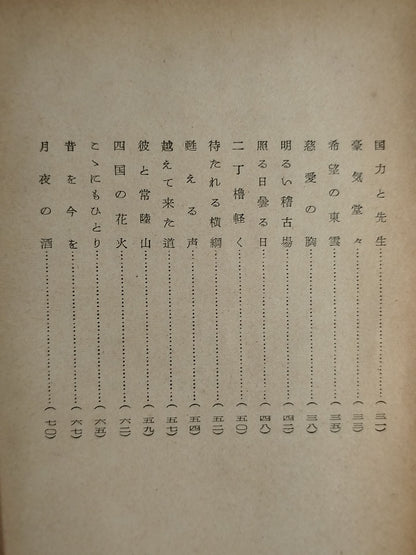 国力と先生……………………(三一)
豪気堂々……………………(三三)
希望の東雲……………………(三五)
慈愛の胸……………………(三八)
明るい稽古場……………………(四二)
照る日曇る日……………………(四八)
二丁櫓軽く……………………(五〇)
待たれる横綱……………………(五二)
甦える声……………………(五四)
越えて来た道……………………(五七)
彼と常陸山……………………(五九)
四国の花火……………………(六二)
こゝにもひとり……………………(六五)
昔を今を……………………(六七)
月夜の酒……………………(七〇)